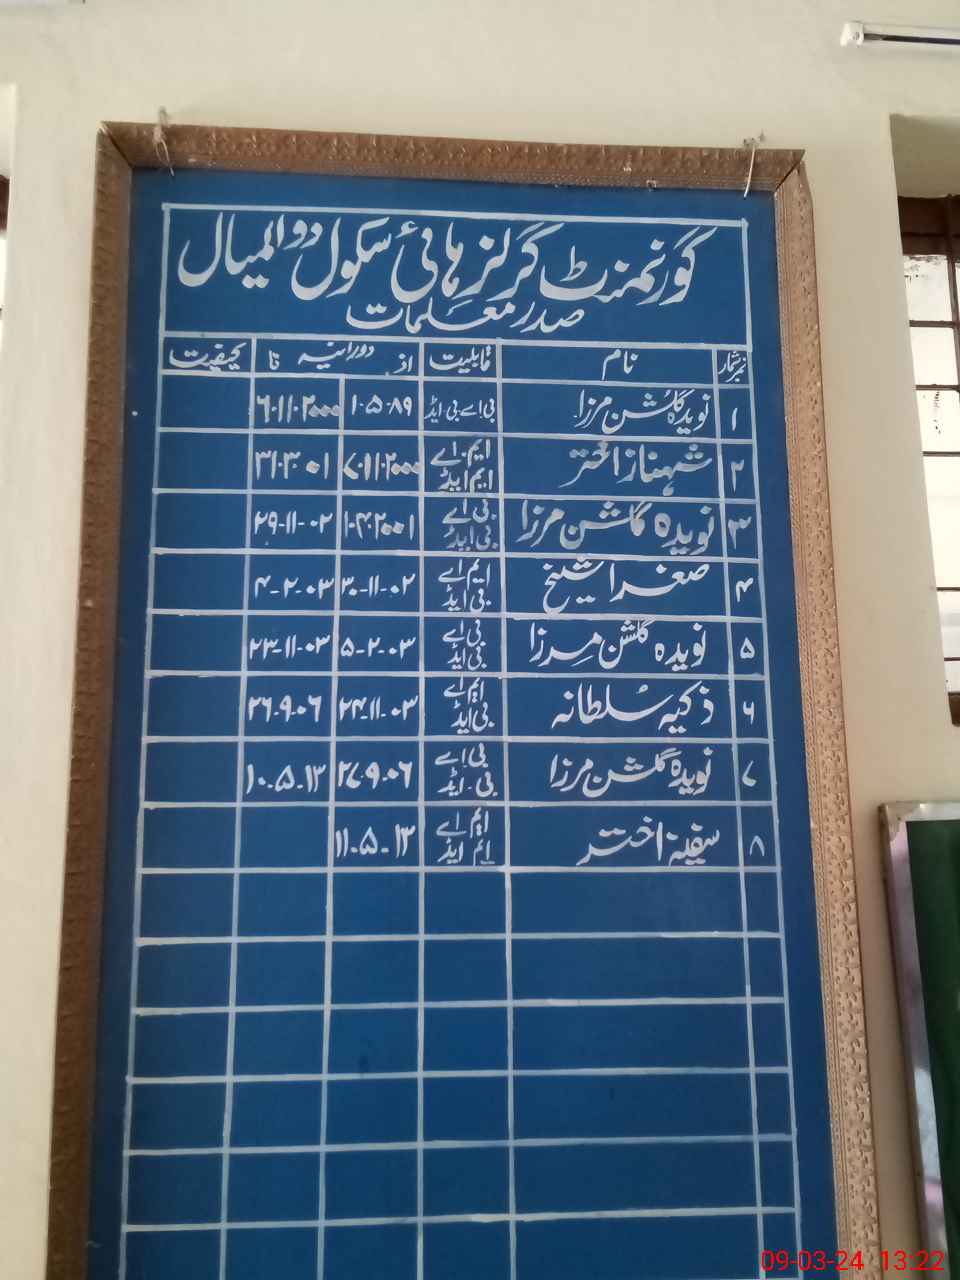 گورنمنٹ گرلز ہائی سکول دوالمیال
صدر معلمات
نمبرشمار نام قابلیت از دورانیہ تا کیفیت
۱ نویدہ گلشن مرزا بی اے بی ایڈ ۱۰۵۰۸۹ ۶۰۱۱۰۲۰۰۰
۲ شہناز اختر ایم اے ایم ایڈ ۷۰۱۱۰۲۰۰۰ ۳۱۰۳۰۰۱
۳ نویدہ گلشن مرزا بی اے بی ایڈ ۱۰۴۰۲۰۰۱ ۲۹-۱۱-۰۲
۴ صغرا شیخ ایم اے بی ایڈ ۳۰-۱۱-۰۲ ۴-۲-۰۳
۵ نویدہ گلشن مرزا بی اے بی ایڈ ۵-۲-۰۳ ۲۳-۱۱-۰۳
۶ ذکیہ سلطانہ ایم اے بی ایڈ ۲۴-۱۱-۰۳ ۲۶-۹-۰۶
۷ نویدہ گلشن مرزا بی اے بی ایڈ ۲۷-۹-۰۶ ۱۰-۵-۱۳
۸ سفینہ اختر ایم اے ایم ایڈ ۱۱-۵-۱۳
09-03-24 13:22